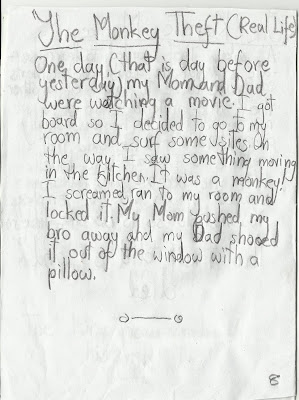 The Monkey Theft (Real Life)
One day, (that is, day before
yesterday) my Mom and Dad
were watching a movie. I got
board so I decided to go to my
room and surf some sites. On
the way, I saw something moving
in the kitchen. It was a monkey!
I screamed, ran to my room and
locked it. My Mom pushed my
bro away and my Dad shooed
it out of the window with a
pillow.
8